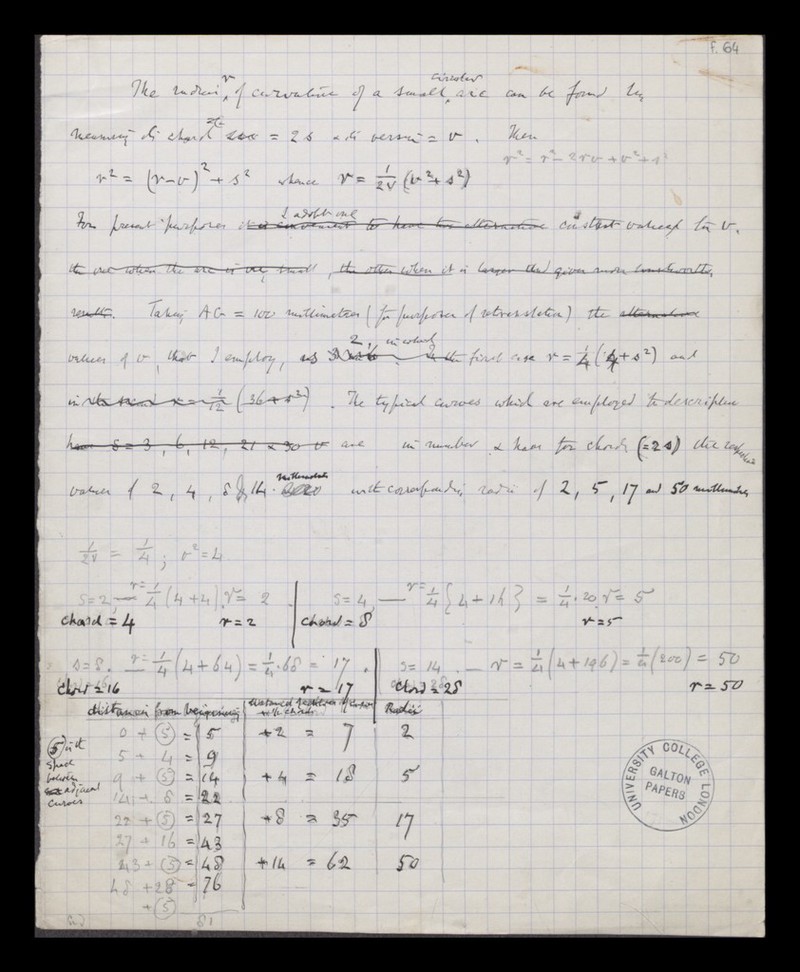 f. 64
The radius r, of curvature of a small circular arc can be found by
measuring its chord = 2s & its versin = v. Then
r² = r² - 2rv + v² + s²
r² = (r-v)² + s² whence r = 1/2v (v² + s²)
For present purposes I adopt one constant value of for v.
the one when the arc is very small, the other when it is larger
results. Taking AG = 100 millimetres (for purposes of the
values of v, that I employ, is 2, in which the first case r = 1/4 (4 + s²) and
in r = 1/12 (36 + s²). The typical curves which are employed
have s = 3, 6, 12, 21 & 30 are in number & have for chords (=2s) the respective
values of 2, 4, 8 & 14. millimetres with corresponding radii of 2, 5, 17 and 50 millimetres
1/2v = 1/4; v² = 4
s=2, — r = 1/4 (4+4) r = 2
s=4, — r = 1/4 {4+16} = 1/4 · 20 r = 5
chord = 4 r = 2
chord = 8 r = 5
s=8. — r = 1/4 (4+64) = 1/4 · 68 = 17.
s=14. — r = 1/4 (4+196) = 1/4 (200) = 50
chord = 16 r = 17
chord = 28 r = 50
distances from beginning
Radii
(5) is the space between adjacent curves
0 + (5) = 5 +2 = 7 2
5 + 4 = 9
9 + (5) = 14 +4 = 18 5
14 + 8 = 22
22 + (5) = 27 +8 = 35 17
27 + 16 = 43
43 + (5) = 48 +14 = 62 50
48 + 28 = 76
+ (5)
81
UNIVERSITY COLLEGE LONDON
GALTON PAPERS